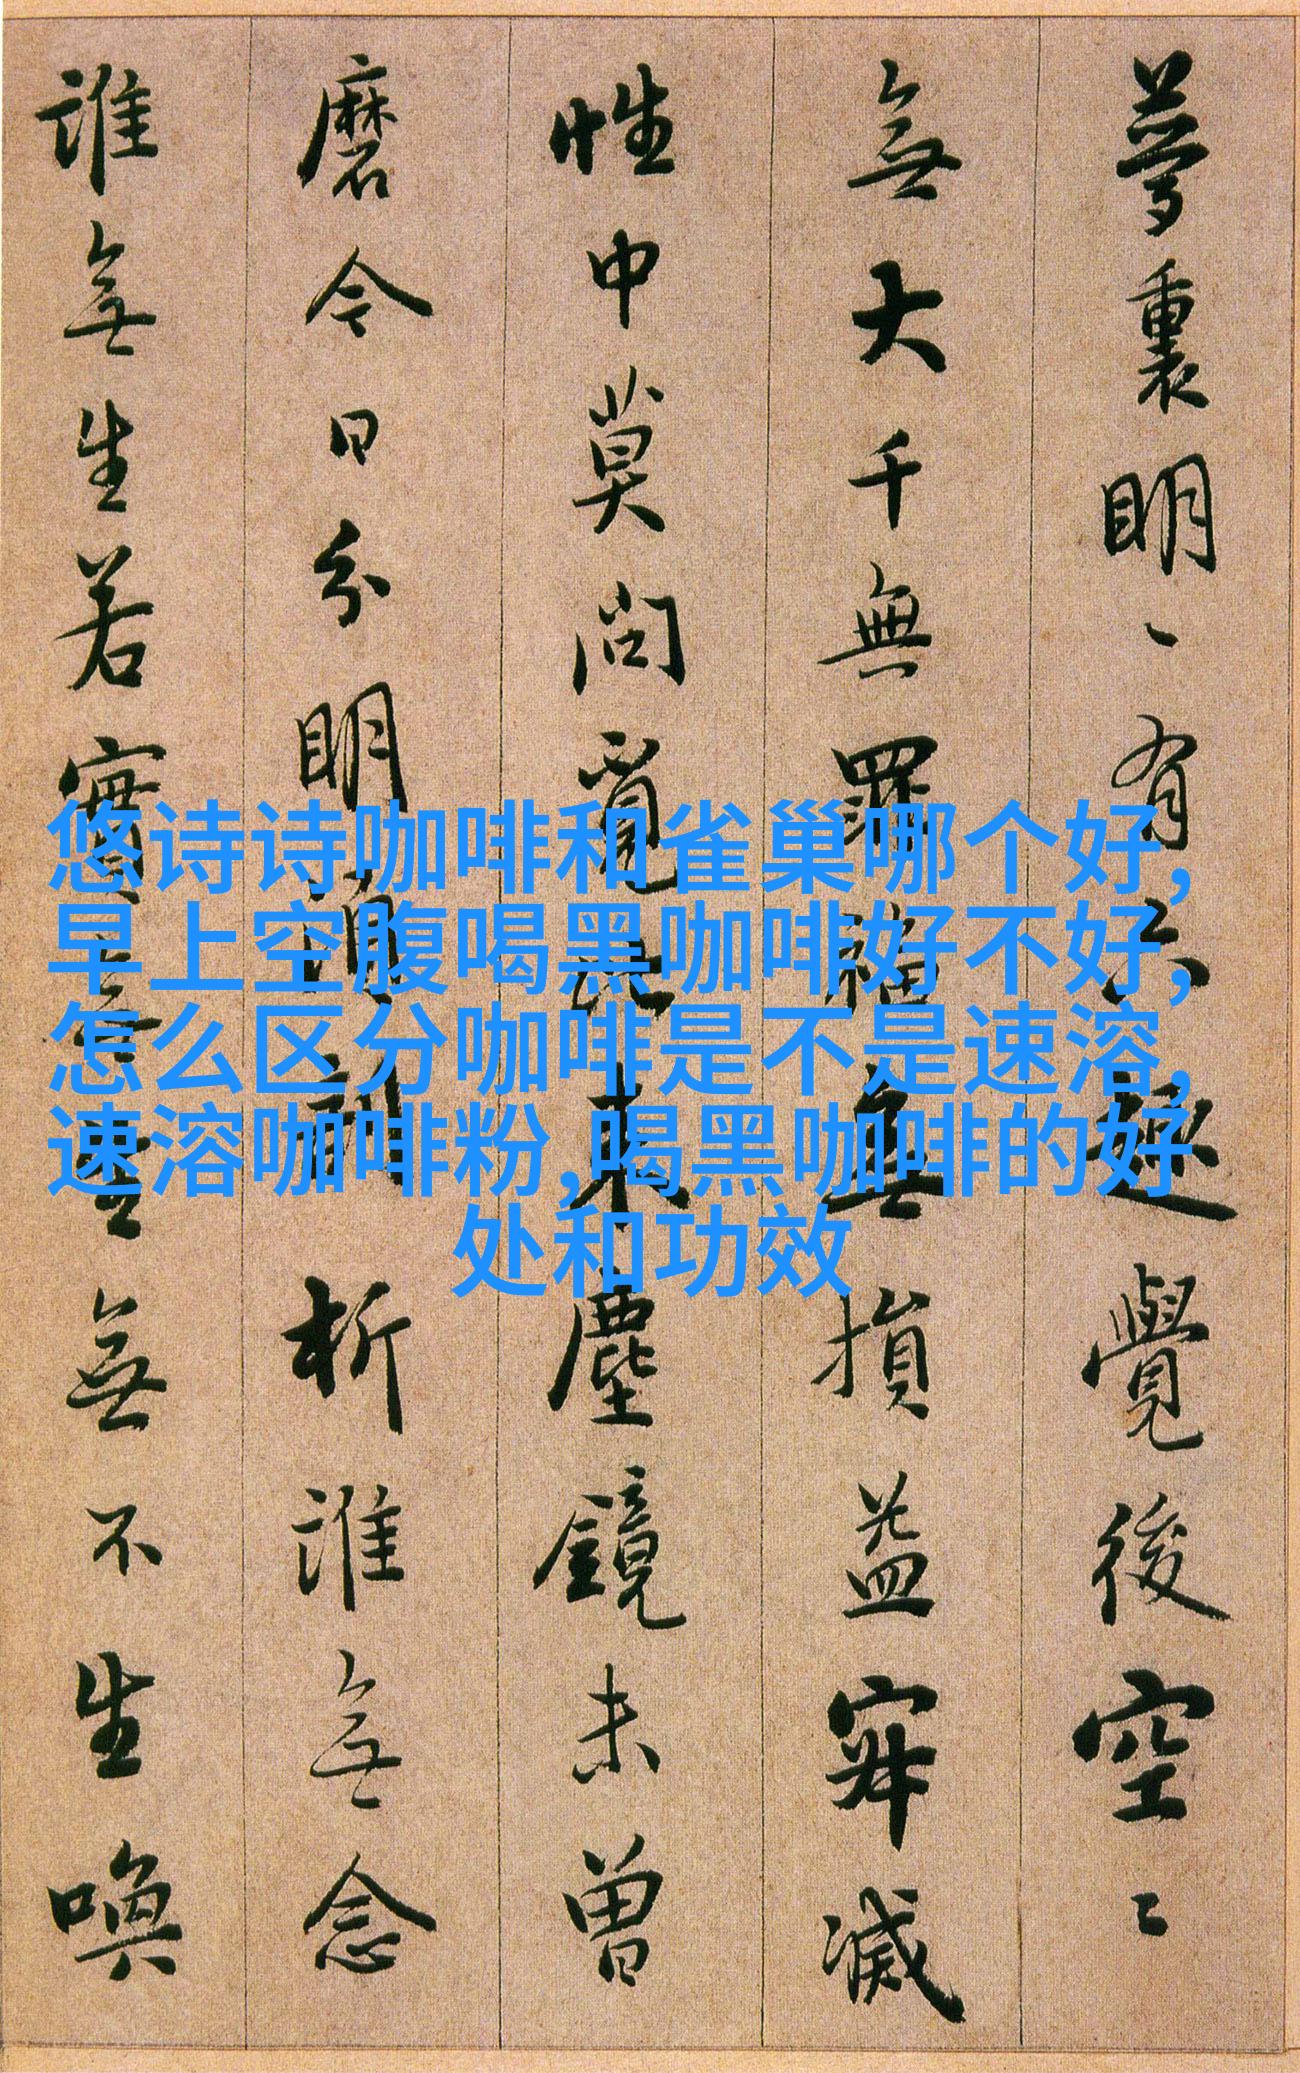 夢裏明〻有六趣覺後空〻
無大千無罪福無損益寂滅
性中莫問覓比來塵鏡未曾
磨今日分明須剖析誰無念
誰無生若實無生無不生喚
悠诗诗咖啡和雀巢哪个好,
早上空腹喝黑咖啡好不好,
怎么区分咖啡是不是速溶,
速溶咖啡粉,喝黑咖啡的好
处和功效